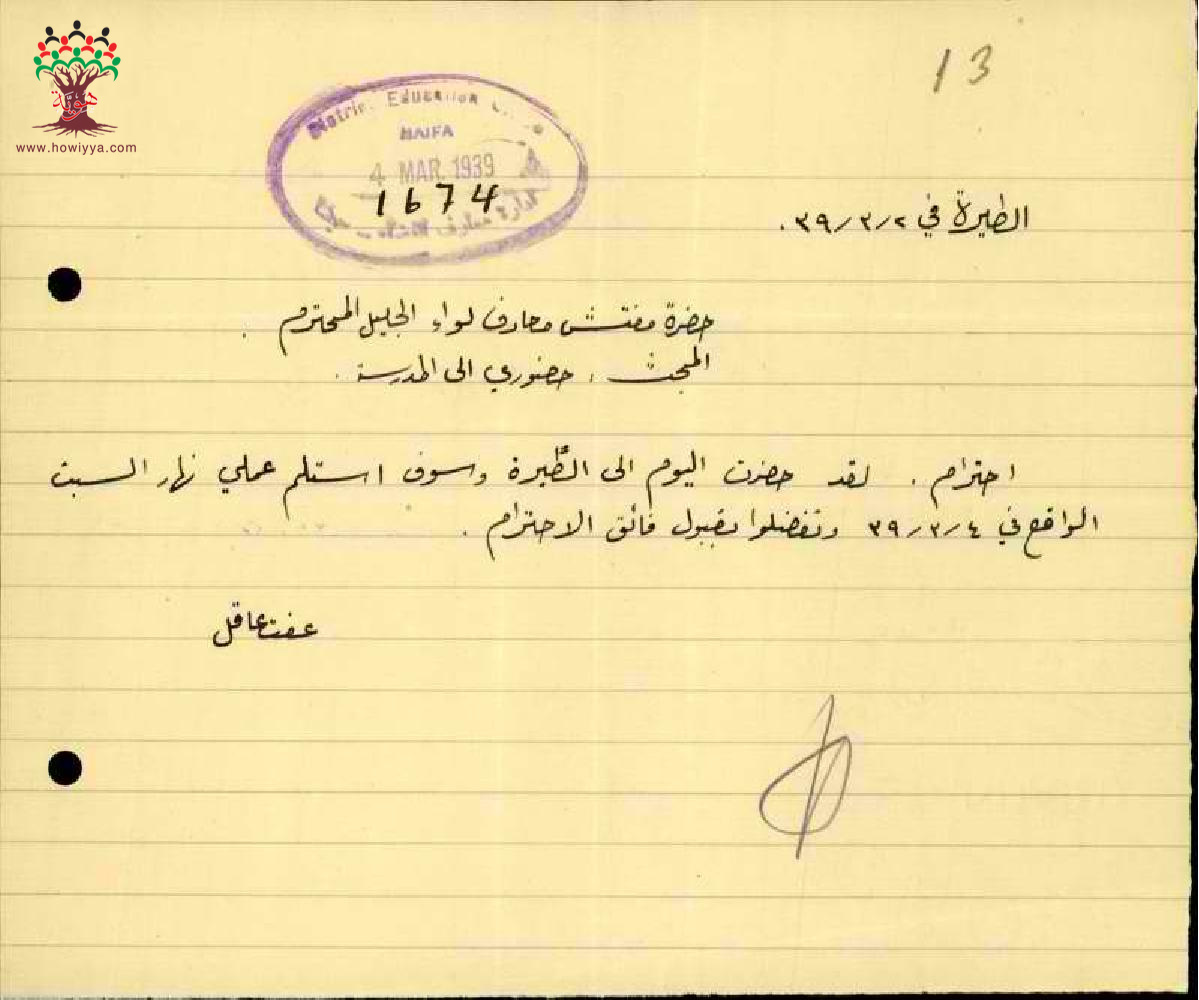 هوية
www.howiyya.com
13
District Education Office
HAIFA
4 MAR 1939
1674
ادارة معارف اللواء - حيفا
الطيرة في ٣٩/٣/٢.
حضرة مفتش معارف لواء الجليل المحترم.
المبحث: حضوري الى المدرسة.
احترام. لقد حضرت اليوم الى الطيرة وسوف استلم عملي نهار السبت
الواقع في ٣٩/٣/٤ وتفضلوا بقبول فائق الاحترام.
عفت عاقل